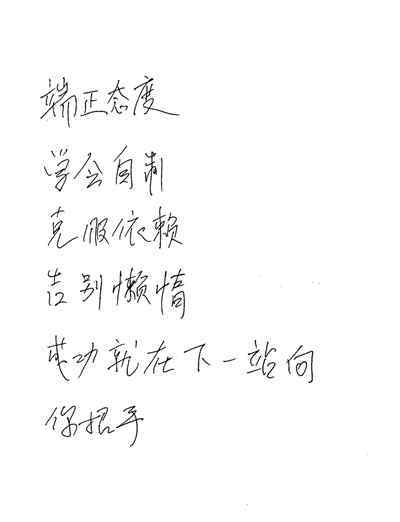 端正态度
学会自制
克服依赖
告别懒惰
成功就在下一站向
你招手